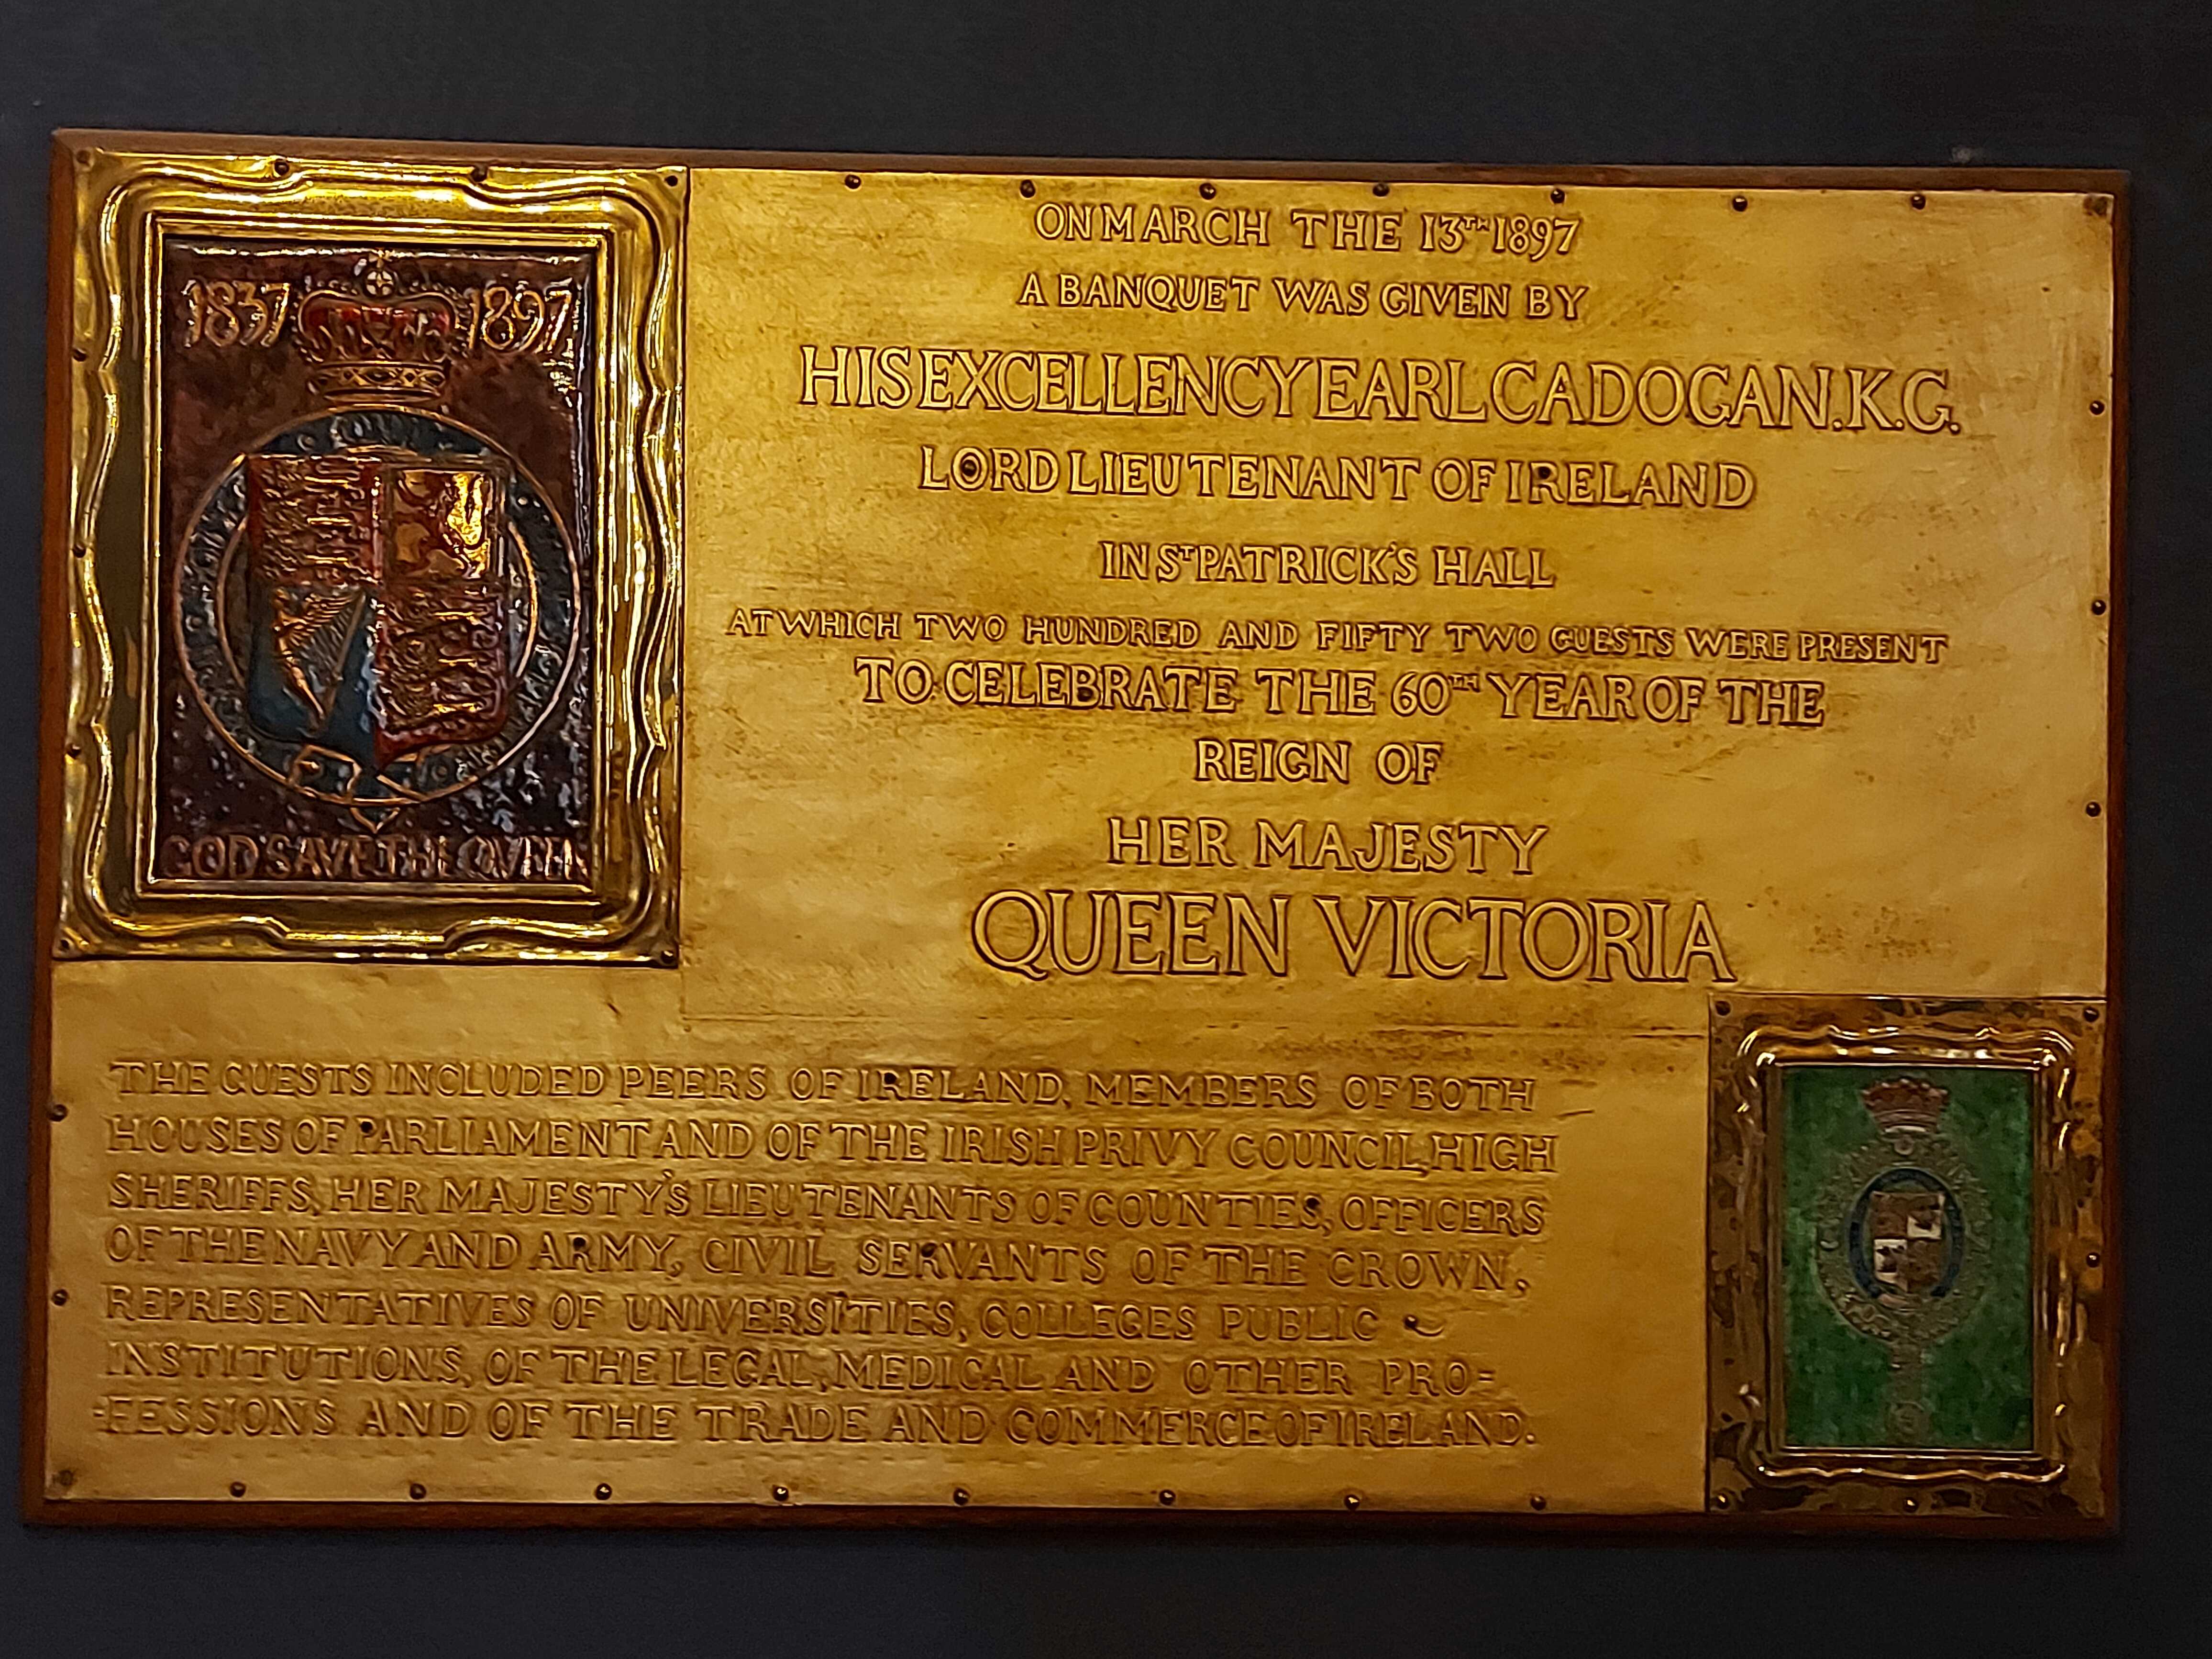 1837 1897
GOD SAVE THE QVEEN
ON MARCH THE 13TH 1897
A BANQUET WAS GIVEN BY
HIS EXCELLENCY EARL CADOGAN. K.G.
LORD LIEUTENANT OF IRELAND
IN ST PATRICK'S HALL
AT WHICH TWO HUNDRED AND FIFTY TWO GUESTS WERE PRESENT
TO CELEBRATE THE 60TH YEAR OF THE
REIGN OF
HER MAJESTY
QUEEN VICTORIA
THE GUESTS INCLUDED PEERS OF IRELAND, MEMBERS OF BOTH
HOUSES OF PARLIAMENT AND OF THE IRISH PRIVY COUNCIL, HIGH
SHERIFFS, HER MAJESTY'S LIEUTENANTS OF COUNTIES, OFFICERS
OF THE NAVY AND ARMY, CIVIL SERVANTS OF THE CROWN,
REPRESENTATIVES OF UNIVERSITIES, COLLEGES PUBLIC
INSTITUTIONS, OF THE LEGAL, MEDICAL AND OTHER PRO=
=FESSIONS AND OF THE TRADE AND COMMERCE OF IRELAND.